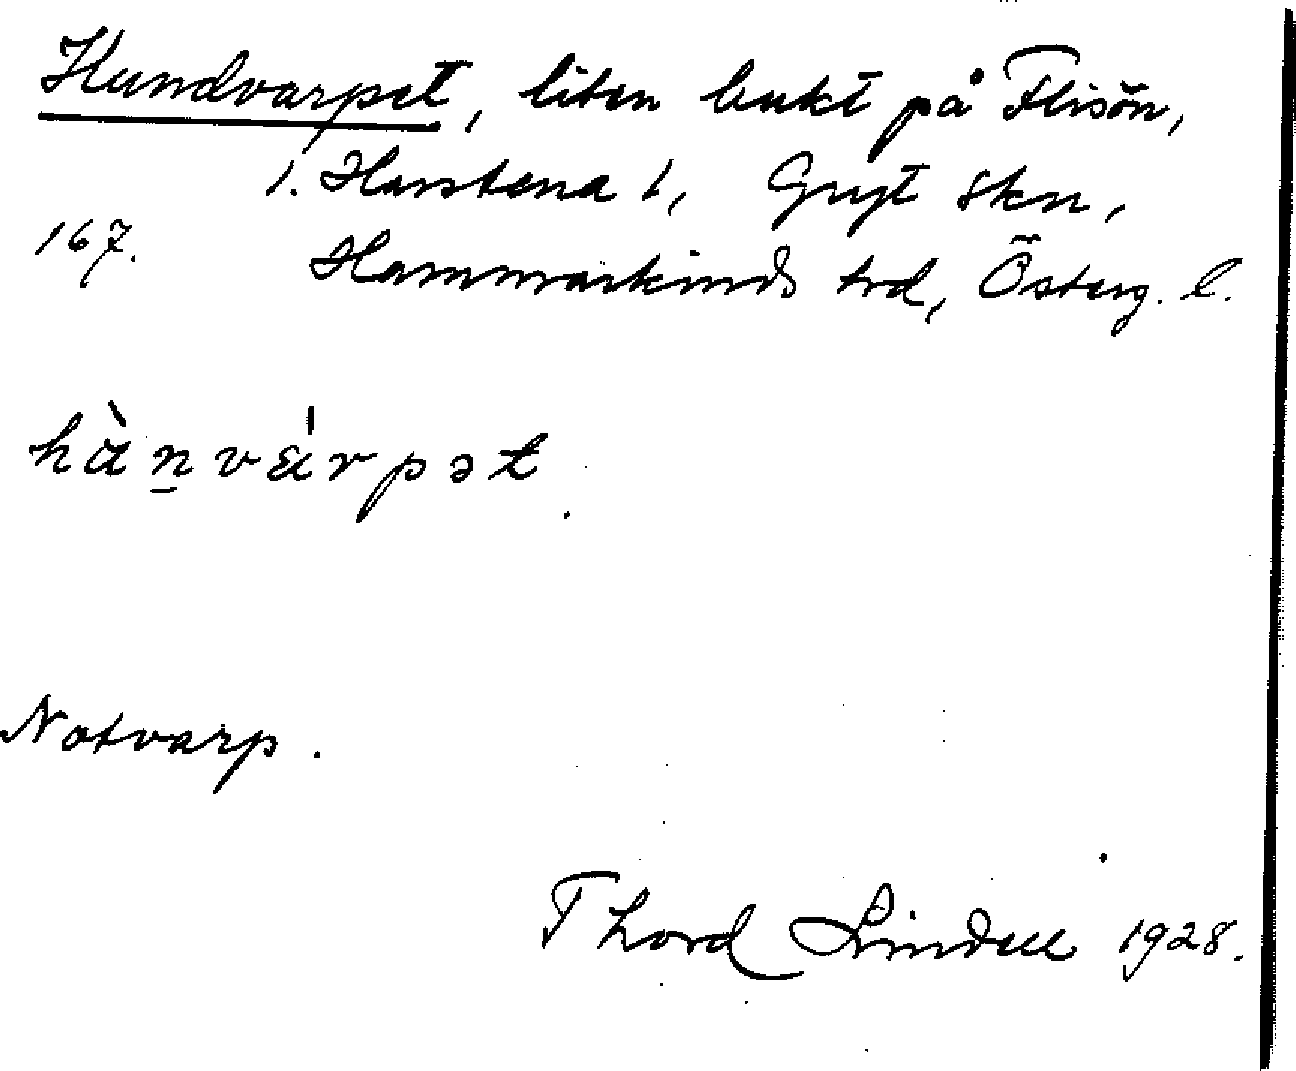 Hundvarpet, liten bukt på Flisön,
1. Harstena 1, Gryt skn,
167. Hammarkinds hrd, Österg. l.
hànvárpət.
Notvarp.
Thord Lindell 1928.